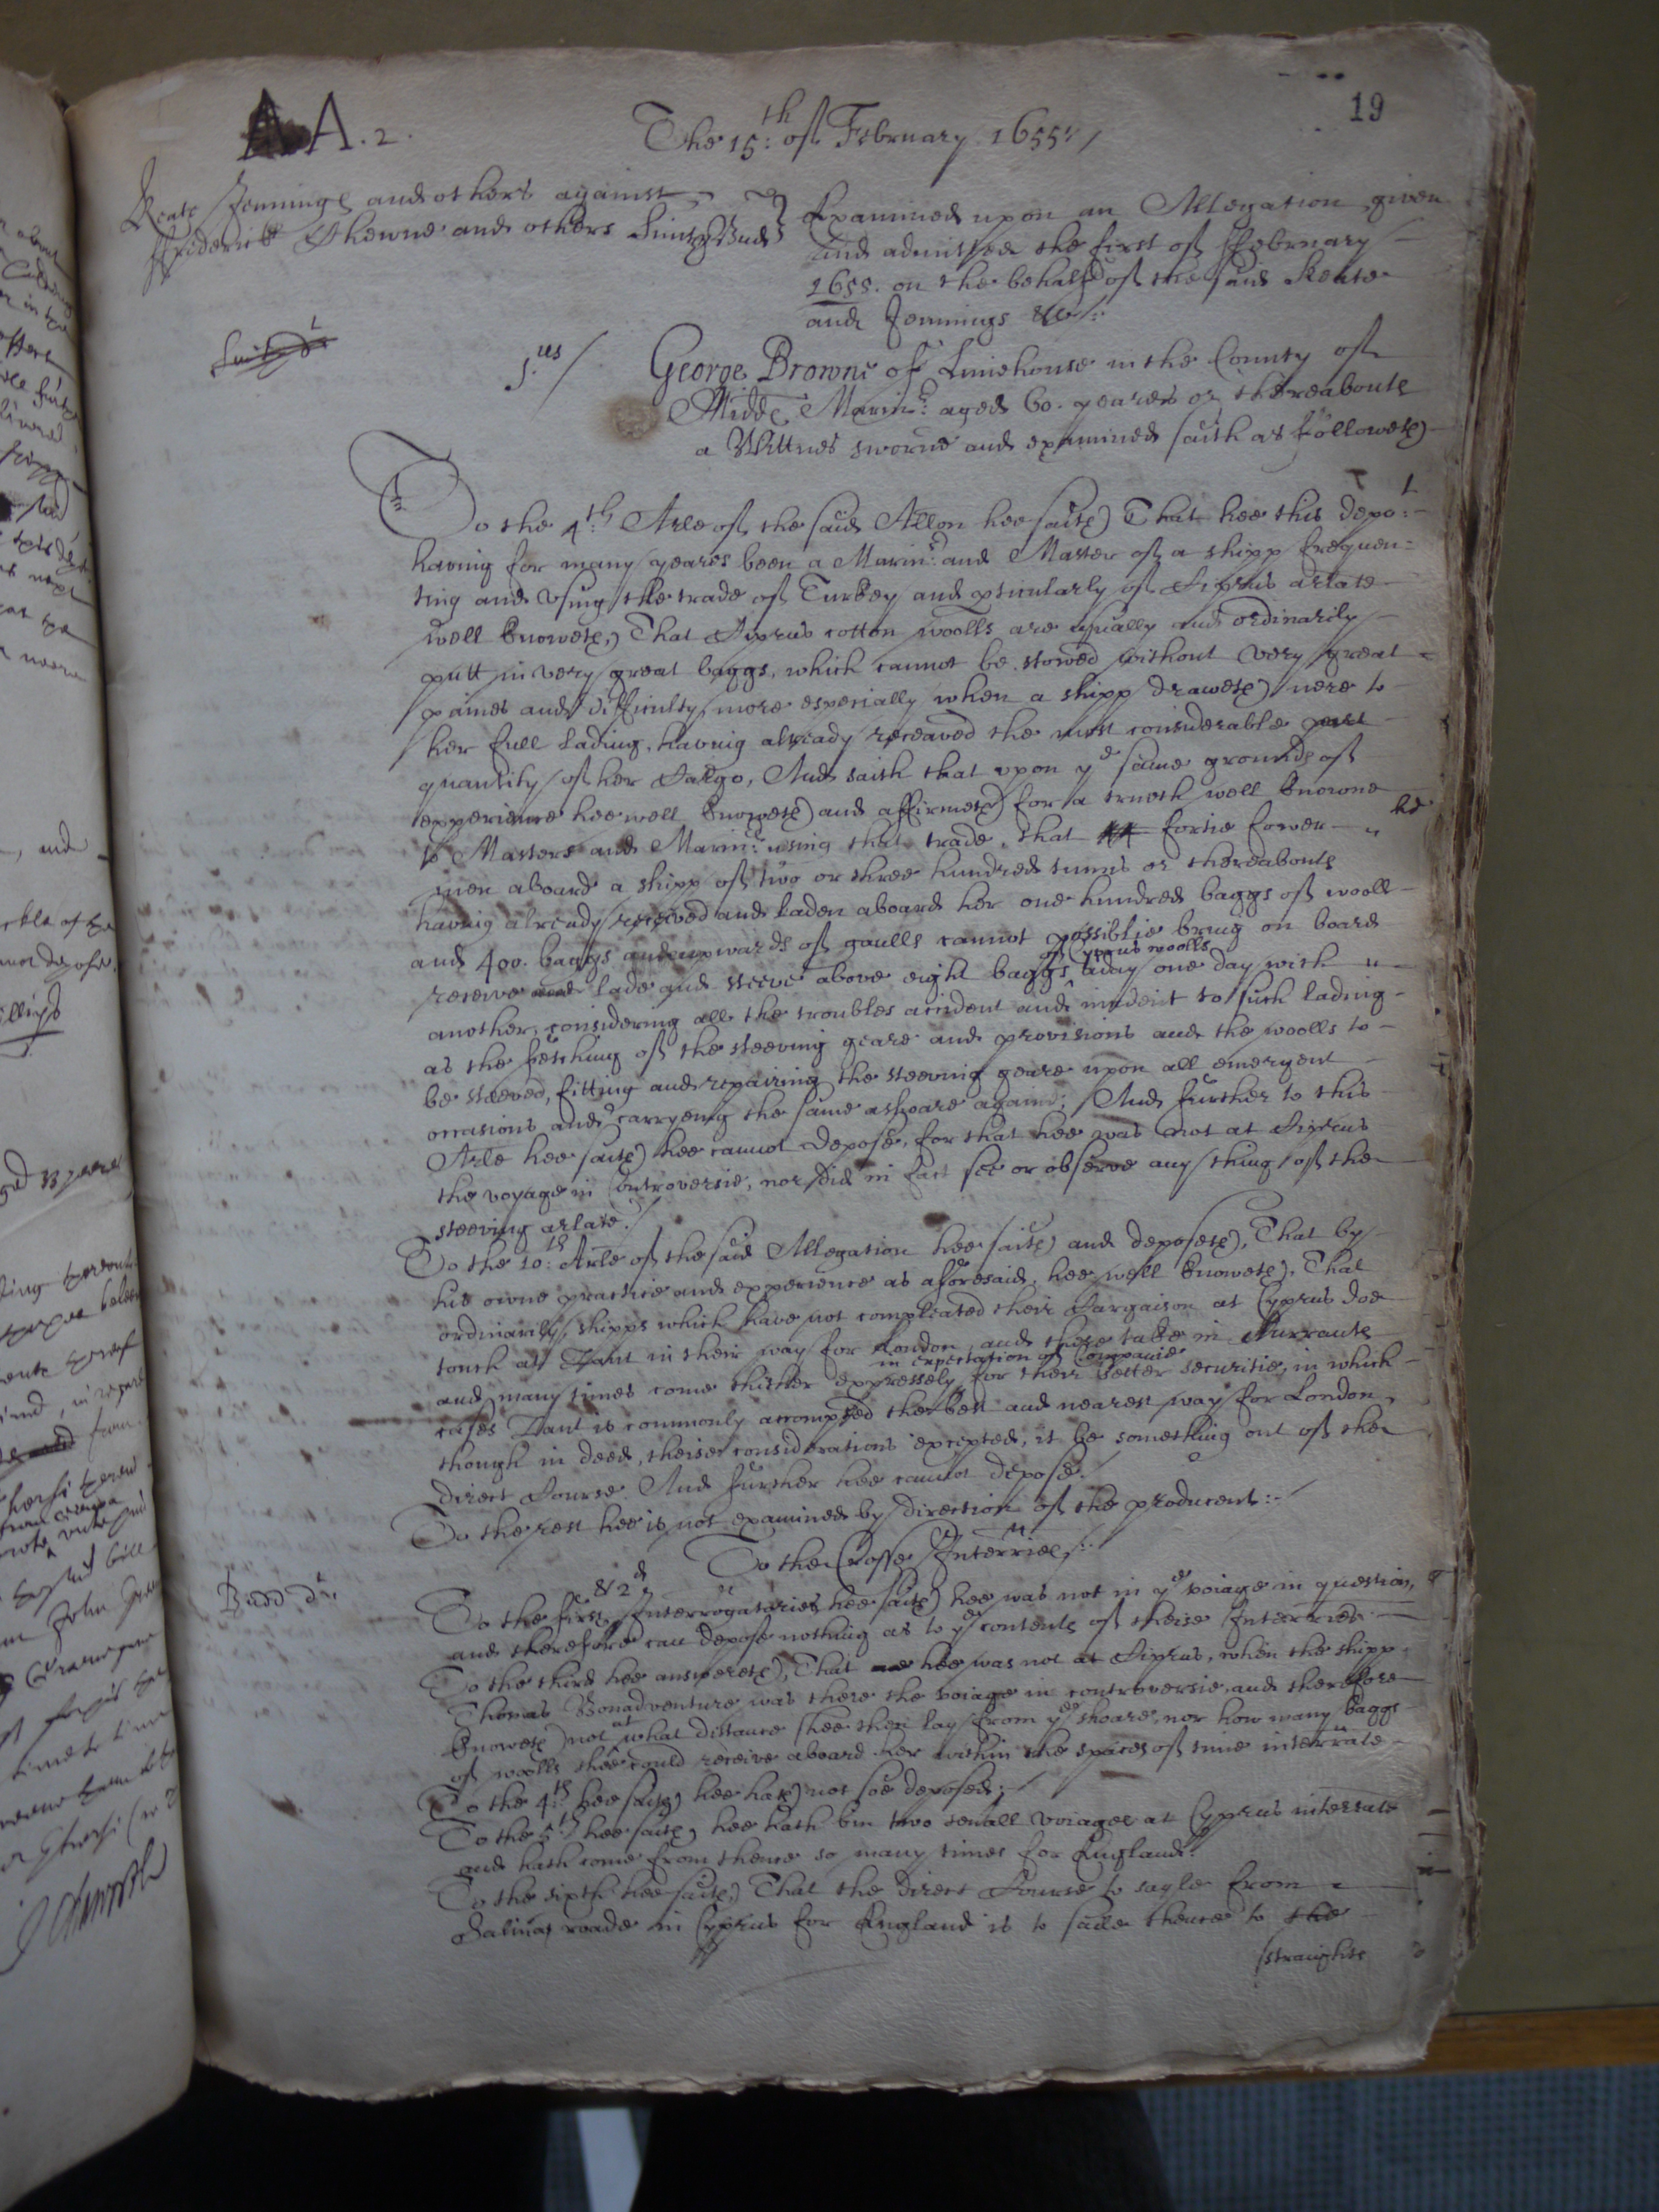 AA.2.
The 15:th of February 1655:/
19
Keate Jennings and others against
ffrederick Thewne and others Smith Budd
Examined upon an Allegation given
and admitted the first of ffebruary
1655. on the behalfe of the said Keate
and Jennings &c:
Smith dt
1.us/
George Browne of Limehouse in the County of
Midds Marinr: aged 60. yeares or thereabouts
a Wittnes sworne and examined saith as followeth
To the 4:th Arle of the said Allon hee saith That hee this depot:
having for many yeares been a Marinr: and Master of a shipp frequen:
ting and using the trade of Turkey and pticularly of Ciprus arlate
well knoweth, That Ciprus cotton woolls are usually and ordinarily
putt in very great baggs, which cannot be stowed without very great
paines and difficulty, more especially when a shipp draweth nere to
her full lading, having already receaved the most considerable part
quantity of her Cargo, And saith that upon ye same grounds of
experience hee well knoweth and affirmeth for a trueth well knowne
to Masters and Marinrs: using that trade, that 44 fortie fower
men aboard a shipp of two or three hundred tunns or thereabouts
having already received and laden aboard her one hundred baggs of wooll
and 400. baggs and upwards of gaulls cannot possiblie bring on board
receive and lade and steeve above eight baggs of Cyprus woolls a day one day with
another, considering all the troubles accident and incident to such lading
as the fetching of the steeving geare and provisions and the woolls to
be steeved, fitting and repairing the steeving geare upon all emergent
occasions and carryeing the same ashoare againe; And further to this
Arle hee saith hee cannot depose, for that hee was not at Ciprus
the voyage in Controversie, nor did in fact see or observe any thing of the
steeving arlate./
To the 10:th Arle of the said Allegation hee saith and deposeth, That by
his owne practice and experience as aforesaid, hee well knoweth, That
ordinarily shipps which have not compleated their Cargaison at Cyprus doe
touch at Zant in their way for London, and there take in Currants
and many times come thither expressely in expectation of Companie for their better securitie, in which
cases Zant is commonly accompted the best and nearest way for London,
though in deed, theise considerations excepted, it be something out of the
direct Course. And further hee cannot depose./
To the rest hee is not examined by direction of the producent:
To the Crosse Interries:
Budd dt.
To the first & 2d Interrogatories hee saith hee was not in ye voiage in question,
and therefore can depose nothing as to ye contents of theise Interries.
To the third hee answereth, That hee was not at Ciprus, when the shipp
Thomas Bonadventure was there the voiage in controversie, and therefore
knoweth not at what distance shee then lay from ye shoare, nor how many baggs
of woolls shee could receive aboard her within the spaces of time interrate
To the 4:th hee saith hee hath not soe deposed;
To the 5th hee saith, hee hath bin two severall voiages at Cyprus interrate
and hath come from thence so many times for England:
To the sixth hee saith, That the direct Course to sayle from
Salinas roade in Cyprus for England is to saile thence to the
straights